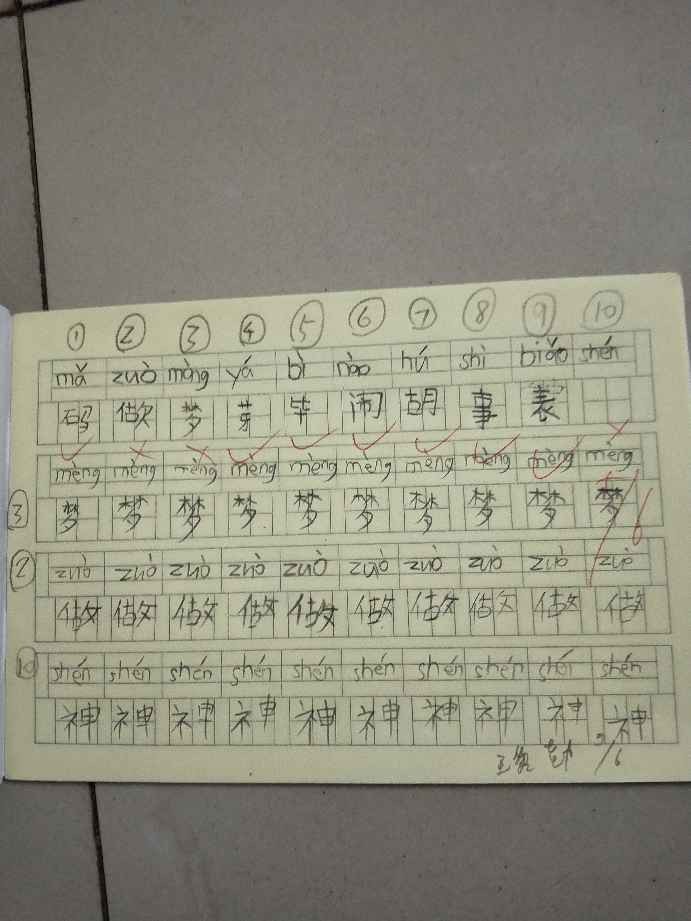 ① ② ③ ④ ⑤ ⑥ ⑦ ⑧ ⑨ ⑩
mǎ zuò màng yá bì nào hú shì biǎo shén
码 做 梦 芽 毕 闹 胡 事 表
mèng mèng mèng mèng mèng mèng mèng mèng mèng mèng
③ 梦 梦 梦 梦 梦 梦 梦 梦 梦 梦
② zuò zuò zuò zuò zuò zuò zuò zuò zuò zuò
做 做 做 做 做 做 做 做 做 做
⑩ shén shén shén shén shén shén shén shén shén shén
神 神 神 神 神 神 神 神 神 神